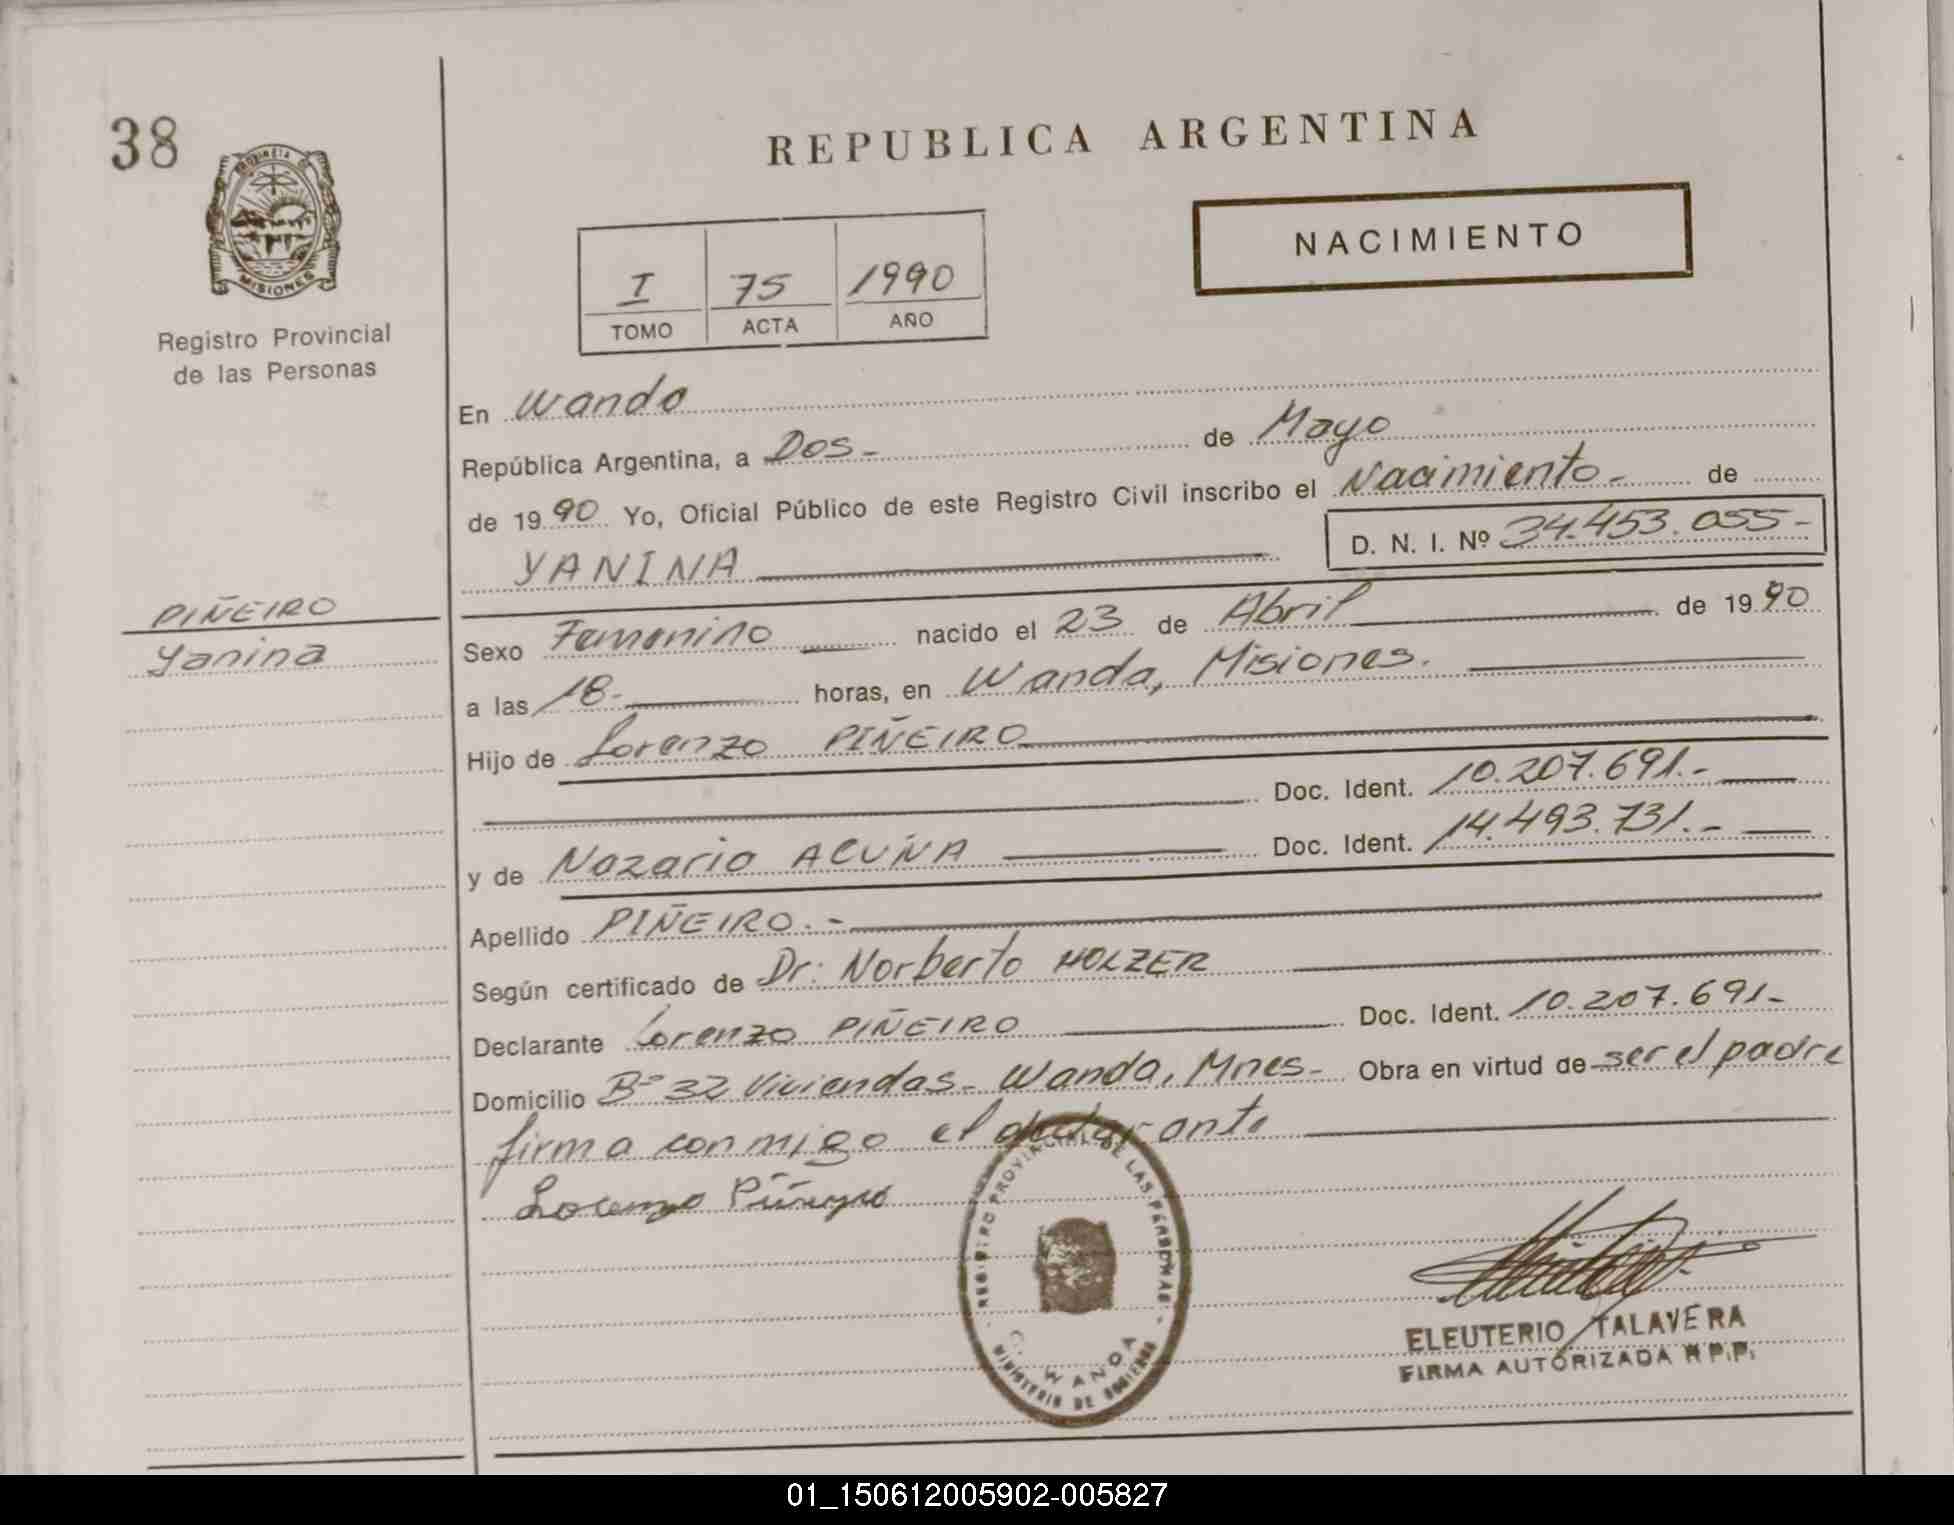 38
REPUBLICA ARGENTINA
NACIMIENTO
PROVINCIA DE
MISIONES
Registro Provincial
de las Personas
I 75 1990
TOMO ACTA AÑO
En Wanda
República Argentina, a Dos - de Mayo
de 1990 Yo, Oficial Público de este Registro Civil inscribo el Nacimiento - de
YANINA D. N. I. Nº 34.453.055-
PIÑEIRO
Yanina
Sexo Femenino nacido el 23 de Abril de 1990
a las 18- horas, en Wanda, Misiones.
Hijo de Lorenzo PIÑEIRO
Doc. Ident. 10.207.691.-
y de Nazaria ACUÑA Doc. Ident. 14.493.731.-
Apellido PIÑEIRO.-
Según certificado de Dr: Norberto HOLZER
Declarante Lorenzo PIÑEIRO Doc. Ident. 10.207.691-
Domicilio Bº 32 Viviendas- Wanda, Mnes- Obra en virtud de ser el padre
firma conmigo el declarante
Lorenzo Piñeyro
REGISTRO PROVINCIAL DE LAS PERSONAS
WANDA
MINISTERIO DE GOBIERNO
ELEUTERIO TALAVERA
FIRMA AUTORIZADA R.P.P.
01_150612005902-005827